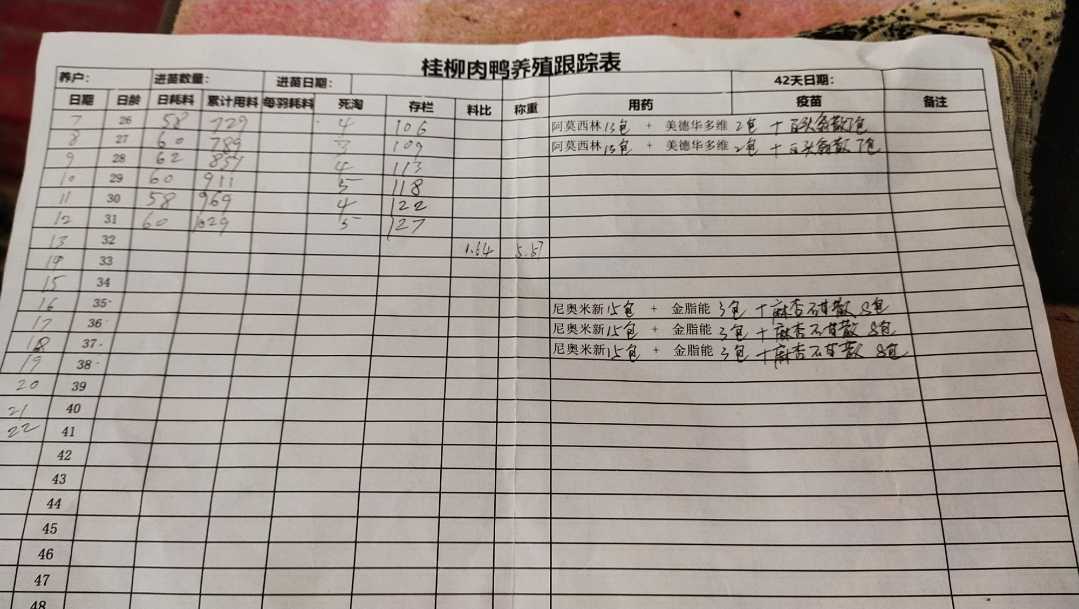 桂柳肉鸭养殖跟踪表
养户： 进苗数量： 进苗日期： 42天日期：
日期 日龄 日耗料 累计用料 每羽耗料 死淘 存栏 料比 称重 用药 疫苗 备注
7 26 58 729 4 106 阿莫西林13包 + 美德华多维 2包 + 白头翁散7包
8 27 60 789 3 109 阿莫西林13包 + 美德华多维 2包 + 白头翁散7包
9 28 62 851 4 113
10 29 60 911 5 118
11 30 58 969 4 122
12 31 60 1029 5 127
13 32 1.64 5.87
14 33
15 34
16 35 尼奥米新15包 + 金脂能 3包 + 麻杏石甘散 8包
17 36 尼奥米新15包 + 金脂能 3包 + 麻杏石甘散 8包
18 37 尼奥米新15包 + 金脂能 3包 + 麻杏石甘散 8包
19 38
20 39
21 40
22 41
42
43
44
45
46
47
48